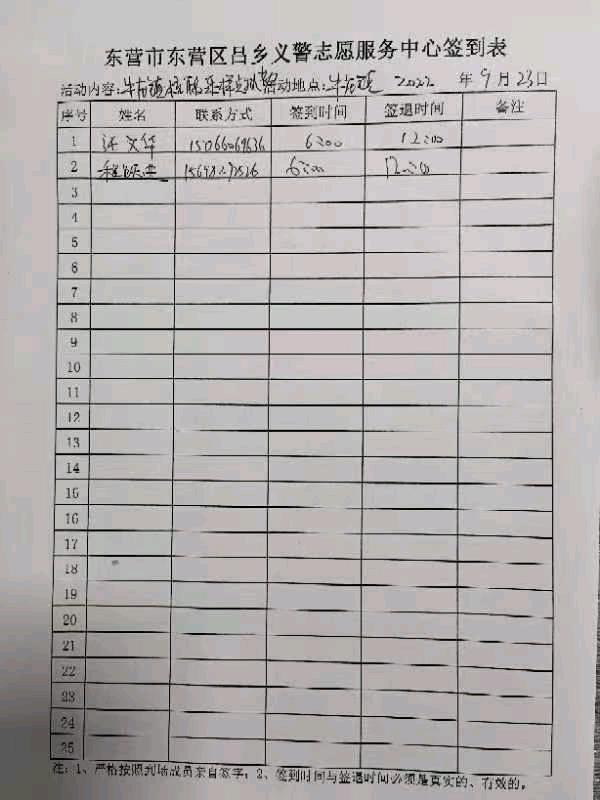 东营市东营区吕乡义警志愿服务中心签到表
活动内容：牛庄镇核酸采样点执勤 活动地点：牛庄镇 2022 年 9 月 23 日
序号 姓名 联系方式 签到时间 签退时间 备注
1 文华 15066069636 6:00 12:00
2 6:00 12:00
3
4
5
6
7
8
9
10
11
12
13
14
15
16
17
18
19
20
21
22
23
24
25
注：1、严格按照到场成员亲自签字；2、签到时间与签退时间必须是真实的、有效的。